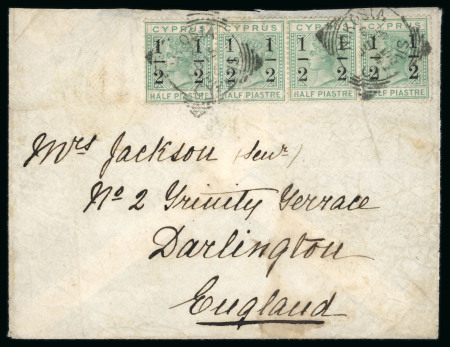 CYPRUS CYPRUS CYPRUS CYPRUS
1/2 1/2 1/2 1/2 1/2 1/2 1/2 1/2
HALF PIASTRE HALF PIASTRE HALF PIASTRE HALF PIASTRE
Mrs Jackson (Senr)
No 2 Trinity Terrace
Darlington
England